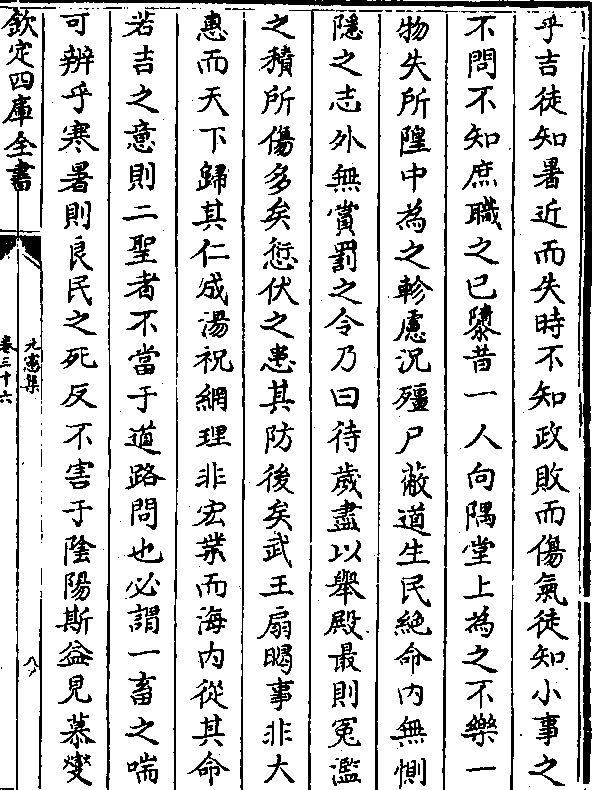 乎吉徒知暑近而失時不知政敗而傷氣徒知小事之
不問不知庶職之已隳昔一人向隅堂上為之不樂一
物失所隍中為之軫慮況殭尸蔽道生民絶命内無惻
隱之志外無賞罰之令乃曰待歲盡以舉殿最則寃濫
之積所傷多矣愆伏之患其防後矣武王扇暍事非大
惠而天下歸其仁成湯祝網理非宏業而海内從其命
若吉之意則二聖者不當于道路問也必謂一畜之喘
可辨乎寒暑則良民之死反不害于陰陽斯益見慕燮
欽定四庫全書
元憲集
卷三十六
八